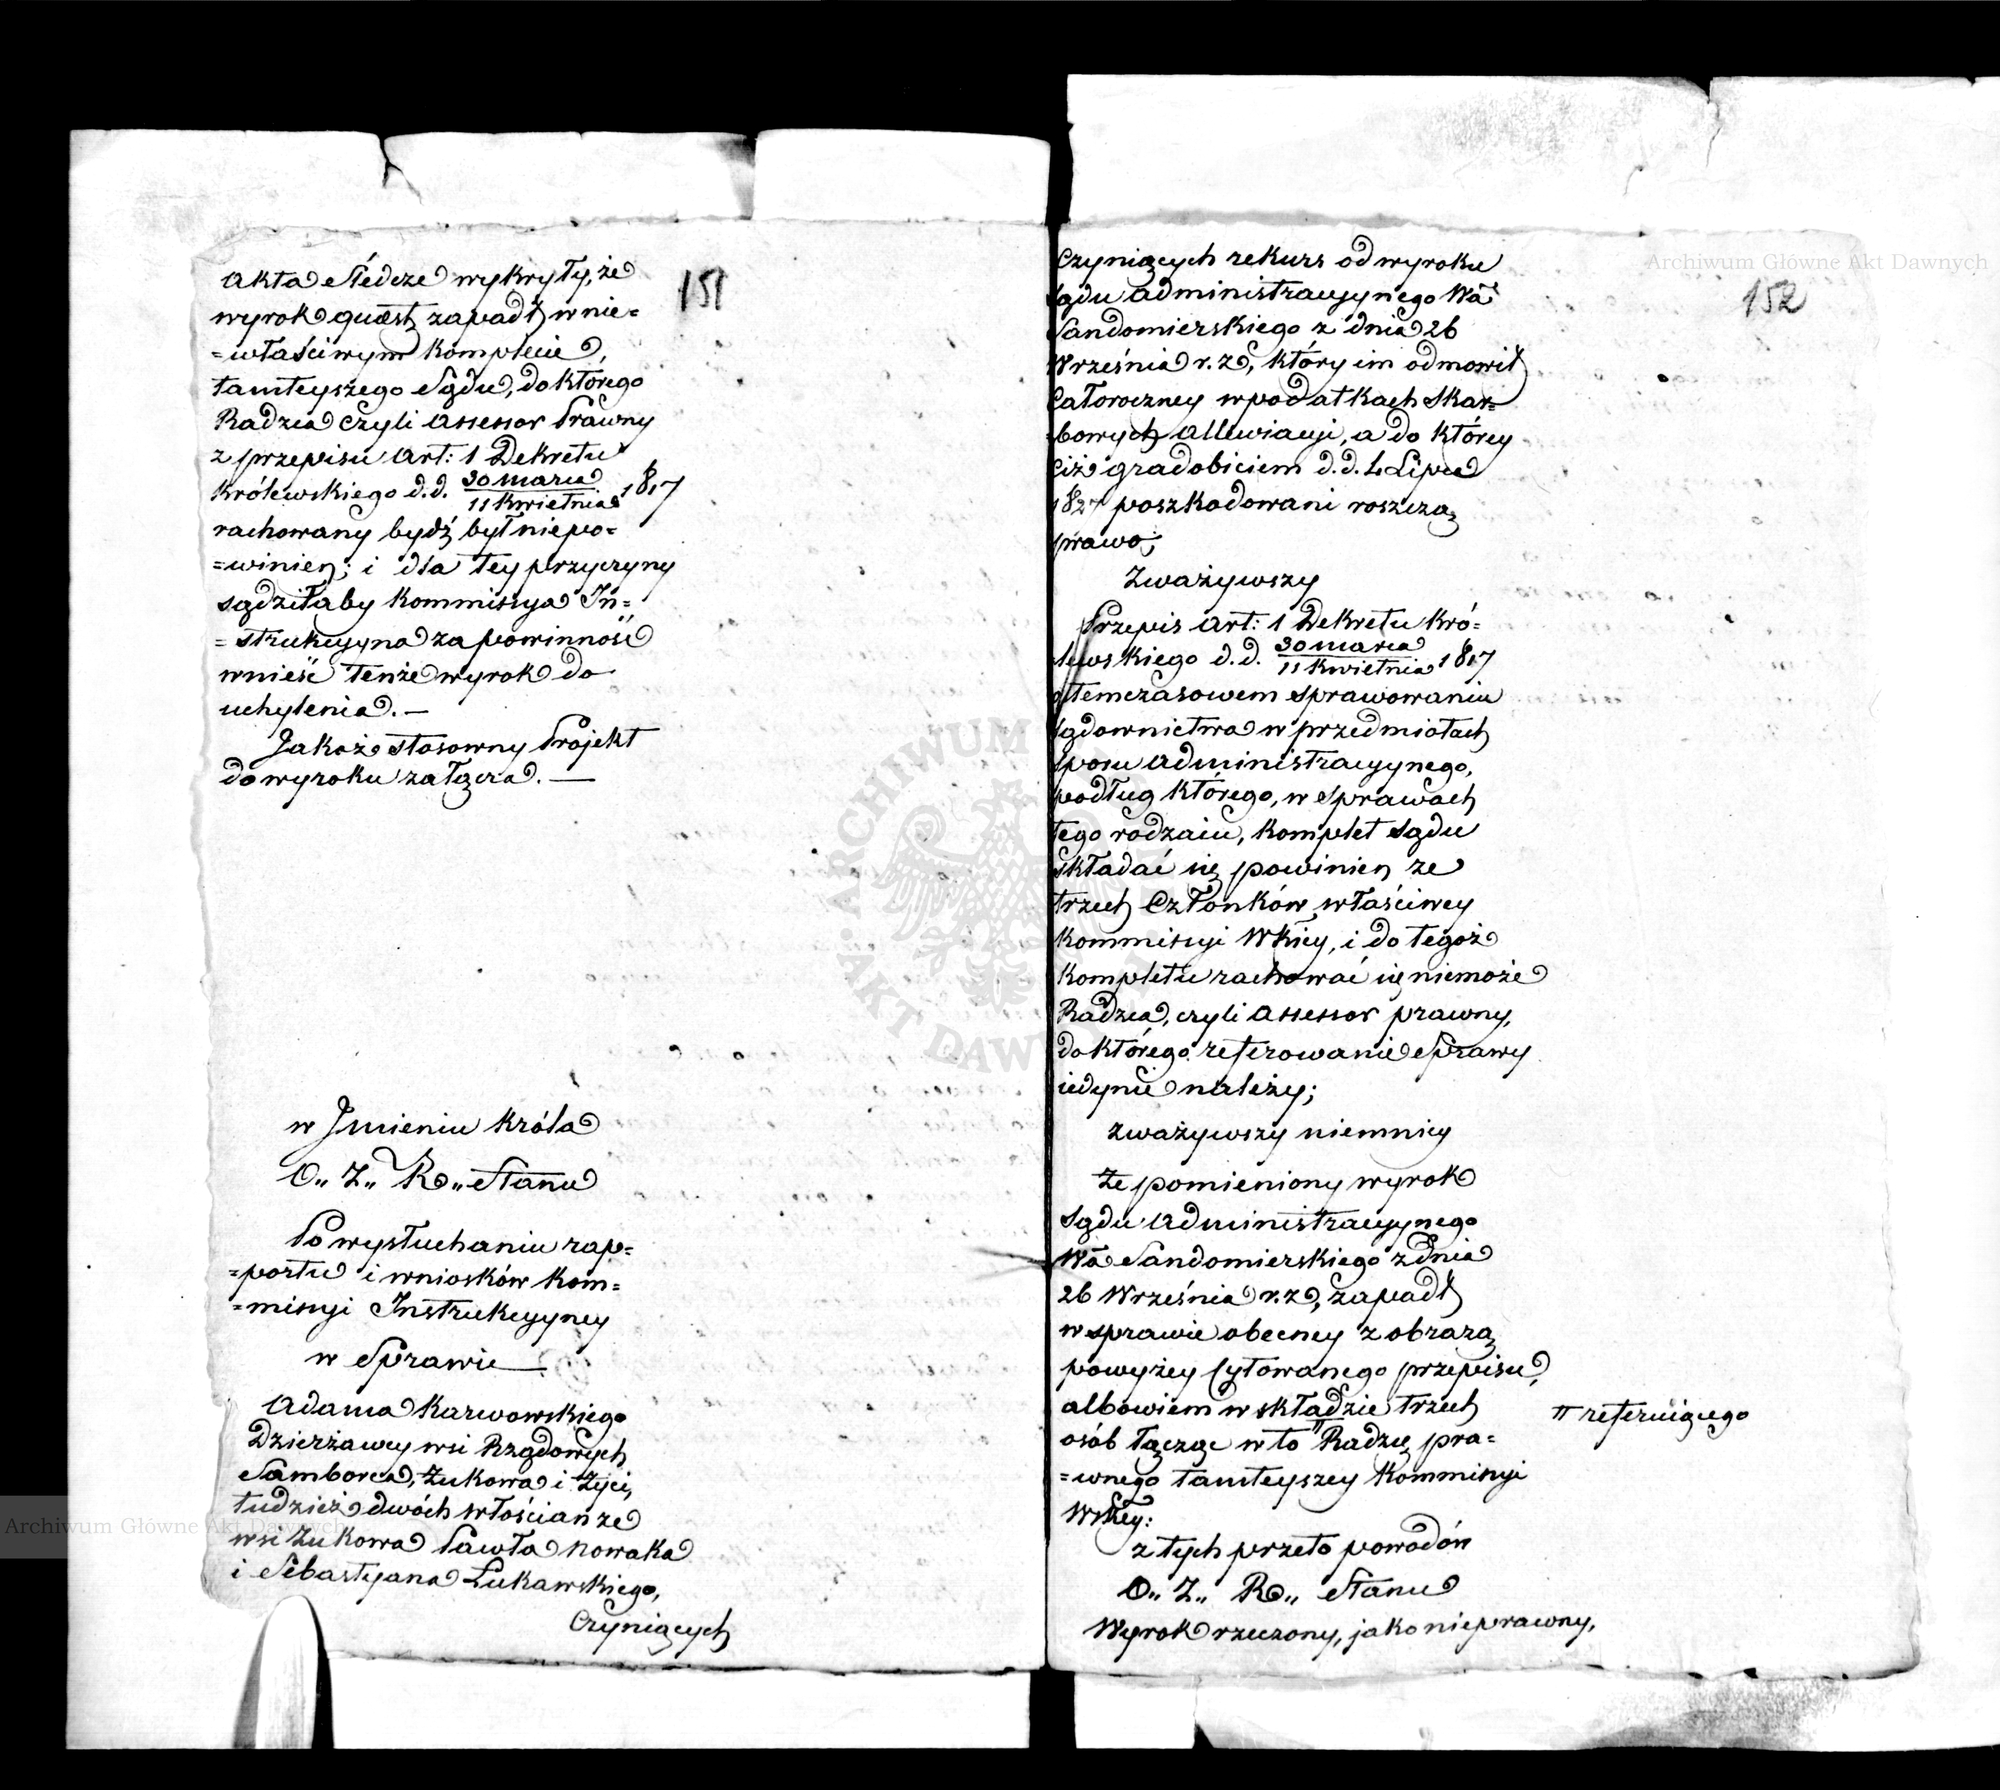 151
Akta śledcze wykryły, że
wyrok quæst: zapadł w nie=
=właściwym komplecie,
tamteyszego Sądu, do którego
Radzca czyli Assessor Prawny
z przepisu Art: 1 Dekretu
Królewskiego d.d. 30 marca / 11 Kwietnia 1817
rachowany bydź był niepo=
=winien; i dla tey przyczyny
sądziłaby Kommissya In=
=strukcyyna za powinność
wnieść tenże wyrok do
uchylenia. —
Jakoż stosowny Projekt
do wyroku załącza. —
w Jmieniu Króla
O,, Z,, R,, Stanu
Po wysłuchaniu rap=
=portu i wniosków Kom=
=missyi Instrukcyyney
w Sprawie
Adama Karwowskiego
Dzierżawcy wsi Rządowych
Samborca, Żukowa i Życi,
tudzież dwóch włościan ze
wsi Żukowa Pawła Nowaka
i Sebastyana Łukawskiego,
Czyniących
152
Czyniących rekurs od wyroku
Sądu Administracyynego Wa
Sandomierskiego z dnia 26
Września r. z, który im odmówił
Całoroczney w podatkach Skar=
bowych allewiacyi, a do którey
ciż gradobiciem d. d. 4 Lipca
1827 poszkodowani roszczą
prawo;
Zważywszy
Przepis Art: 1 Dekretu Kró=
lewskiego d. d. 30 marca / 11 Kwietnia 1817
o temczasowem sprawowaniu
sądownictwa w przedmiotach
sporu Administracyynego,
podług którego, w sprawach
tego rodzaiu, komplet Sądu
składać się powinien ze
trzech Członków właściwey
Kommissyi Wkiey, i do tegoż
Kompletu rachować się niemoże
Radzca, czyli Assessor prawny,
do którego referowanie Sprawy
iedynie należy;
zważywszy niemniey
że pomieniony wyrok
Sądu Administracyynego
Wa Sandomierskiego z dnia
26 Września r. z, zapadł
w sprawie obecney z obrazą
powyżey cytowanego przepisu,
albowiem w składzie trzech
osób łącząc w to " Radzcę pra=
" referuiącego
=wnego tamteyszey Kommissyi
Wskiey:
z tych przeto powodów
O,, Z,, R,, Stanu
Wyrok rzeczony, jako nieprawny,
Archiwum Główne Akt Dawnych
Archiwum Główne Akt Dawnych